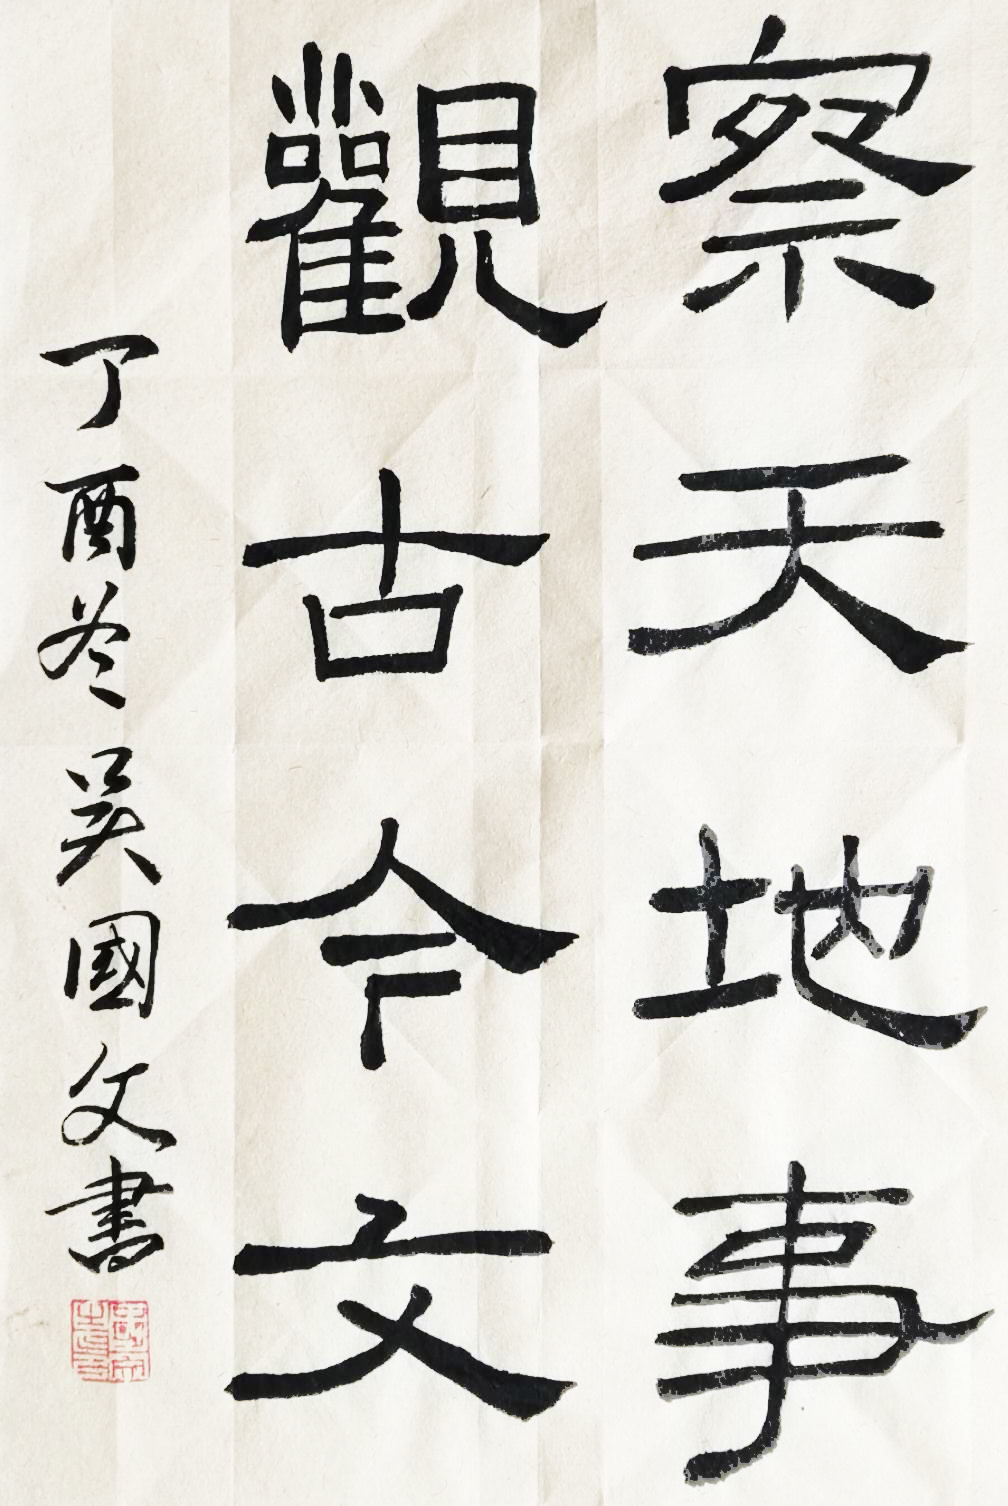 察天地事
觀古今文
丁酉冬吴國文書